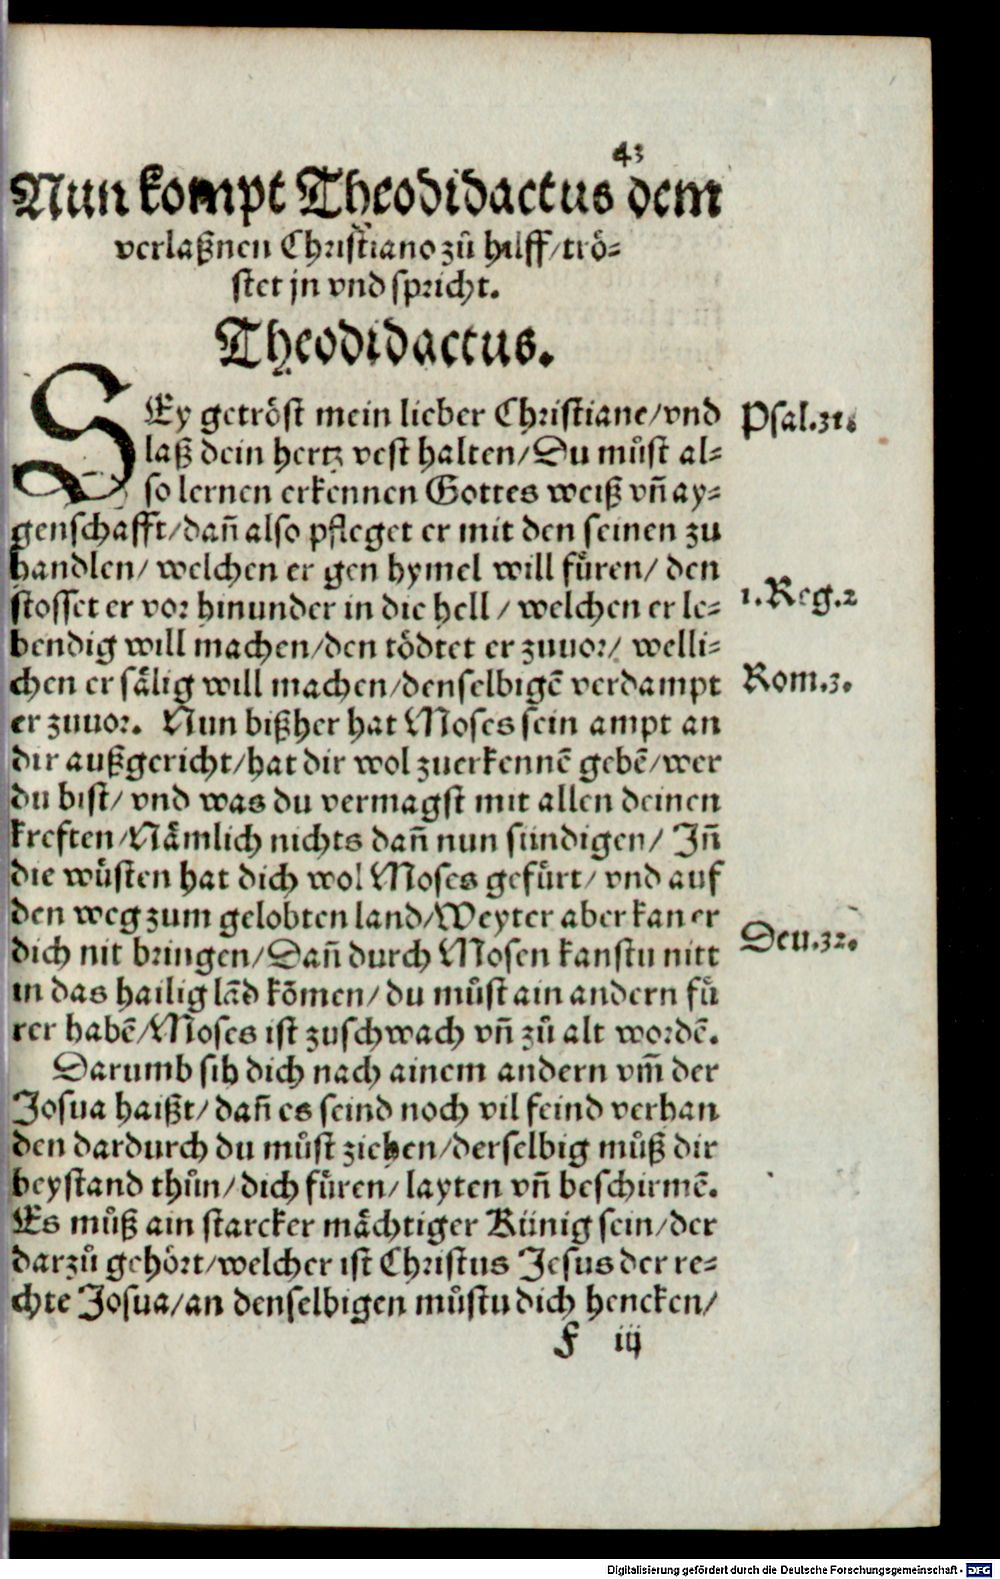 43
Nun kompt Theodidactus dem
verlaßnen Christiano zů hilff/trö-
stet jn vnd spricht.
Theodidactus.
SEy getröst mein lieber Christiane/vnd
laß dein hertz vest halten/Du můst al-
so lernen erkennen Gottes weiß vñ ay-
genschafft/dañ also pfleget er mit den seinen zu
handlen/ welchen er gen hymel will füren/ den
stosset er vor hinunder in die hell / welchen er le-
bendig will machen/den tödtet er zuuor/ welli-
chen er sälig will machen/denselbigē verdampt
er zuuor. Nun bißher hat Moses sein ampt an
dir außgericht/hat dir wol zuerkennē gebē/wer
du bist/ vnd was du vermagst mit allen deinen
kreften/Nämlich nichts dañ nun sündigen/ Jñ
die wüsten hat dich wol Moses gefürt/ vnd auf
den weg zum gelobten land/Weyter aber kan er
dich nit bringen/Dañ durch Mosen kanstu nitt
in das hailig lād kōmen/ du můst ain andern fü
rer habē/Moses ist zuschwach vñ zů alt wordē.
Darumb sih dich nach ainem andern vm̄ der
Josua haißt/ dañ es seind noch vil feind verhan
den dardurch du můst ziehen/derselbig můß dir
beystand thůn/ dich füren/ layten vñ beschirmē.
Es můß ain starcker mächtiger Künig sein/der
darzů gehört/welcher ist Christus Jesus der re-
chte Josua/an denselbigen můstu dich hencken/
F iij
Psal.31.
1.Reg.2
Rom.3.
Deu.32.
Digitalisierung gefördert durch die Deutsche Forschungsgemeinschaft - DFG